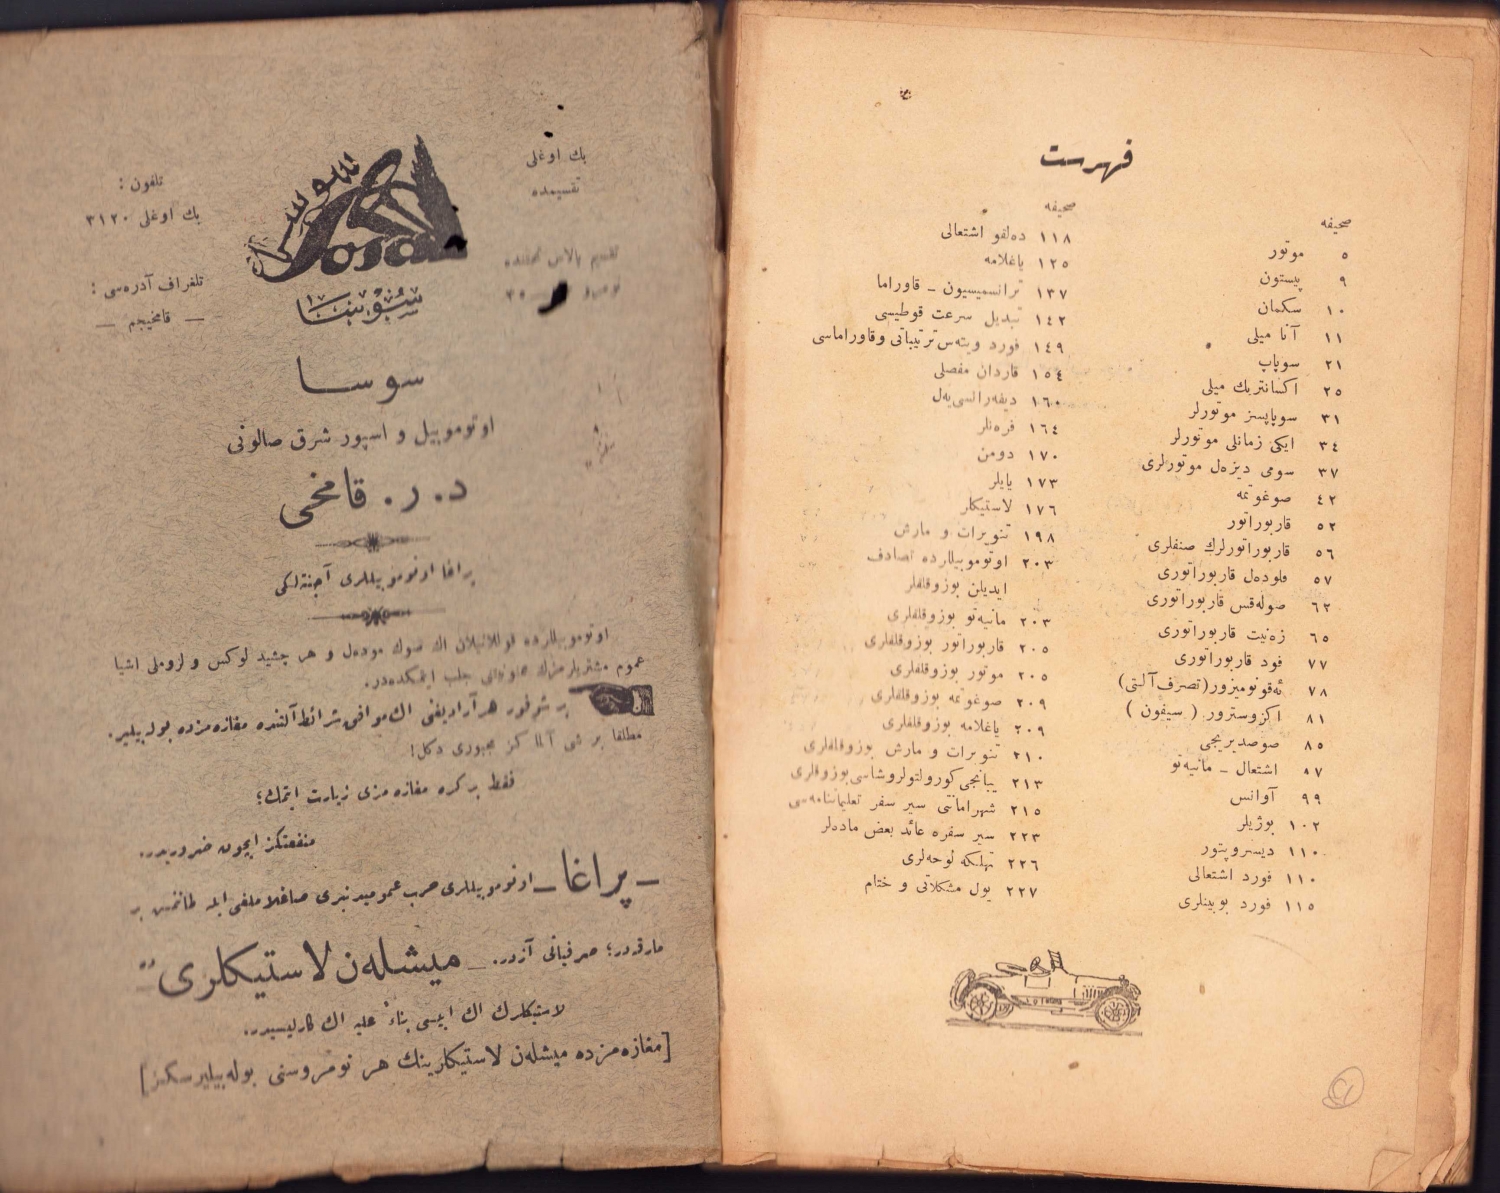 بك اوغلی
تقسیمده
تلفون :
بك اوغلی ٣١٢٠
تلغراف آدره‌سی :
— قامخیجم —
سوسا
Sosa
سوسا
اوتوموبیل و اسپور شرق صالونی
د. ر. قامخی
پراغا اوتوموبیللری آجنته‌لكی
اوتوموبیللرده قوللانیلان اك صوك موده‌ل و هر چشید لوكس و لزوملی اشیا
عموم مشتریلرمزك جلب ایتمكده‌در.
بر شوفور هر آرادیغنی اك موافق شرائط آلتنده مغازه‌مزده بوله‌بیلیر.
مطلقا بر شی آلماكز مجبوری دكل!
فقط بر كره مغازه‌مزی زیارت ایتمك؛
منفعتكز ایچون ضروریدر.
— پراغا — اوتوموبیللری حرب عمومیدنبری صاغلاملغی ایله طانمش بر
ماركه‌در؛ صرفیاتی آزدر. — میشله‌ن لاستیكلری
لاستیكلرك اك اییسی بناءً علیه اك كارلیسیدر.
[مغازه‌مزده میشله‌ن لاستیكلرینك هر نومروسنی بوله‌بیلیرسكز]
فهرست
صحیفه
٥ موتور
٩ پیستون
١٠ سكمان
١١ آنا میلی
٢١ سوپاپ
٢٥ اكسانتریك میلی
٣١ سوپاپسز موتورلر
٣٤ ایكی زمانلی موتورلر
٣٧ سومی دیزه‌ل موتورلری
٤٢ صوغوتمه
٥٢ قاربوراتور
٥٦ قاربوراتورلرك صنفلری
٥٧ فلوده‌ل قاربوراتوری
٦٢ صوله‌قس قاربوراتوری
٦٥ زه‌نیت قاربوراتوری
٧٧ فود قاربوراتوری
٧٨ ئه‌قونومیزور (تصرف آلتی)
٨١ اكزوسترور ( سیفون )
٨٥ صوصدیریجی
٨٧ اشتعال ـ مانیه‌تو
٩٩ آوانس
١٠٢ بوژیلر
١١٠ دیستروپتور
١١٠ فورد اشتعالی
١١٥ فورد بوبینلری
صحیفه
١١٨ ده‌لقو اشتعالی
١٢٥ یاغلامه
١٣٧ ترانسمیسیون ـ قاوراما
١٤٢ تبدیل سرعت قوطیسی
١٤٩ فورد ویته‌س ترتیباتی و قاوراماسی
١٥٤ قاردان مفصلی
١٦٠ دیفه‌رانسییه‌ل
١٦٤ فره‌نلر
١٧٠ دومن
١٧٣ یایلر
١٧٦ لاستیكلر
١٩٨ تنویرات و مارش
٢٠٣ اوتوموبیللرده تصادف
ایدیلن بوزوقلقلر
٢٠٣ مانیه‌تو بوزوقلقلری
٢٠٥ قاربوراتور بوزوقلقلری
٢٠٥ موتور بوزوقلقلری
٢٠٩ صوغوتمه بوزوقلقلری
٢٠٩ یاغلامه بوزوقلقلری
٢١٠ تنویرات و مارش بوزوقلقلری
٢١٣ یبانجی كورولتولر و شاسی بوزوقلری
٢١٥ شهرامانتی سیر سفر تعلیماتنامه‌سی
٢٢٣ سیر سفره عائد بعض ماده‌لر
٢٢٦ تهلكه لوحه‌لری
٢٢٧ یول مشكلاتی و ختام